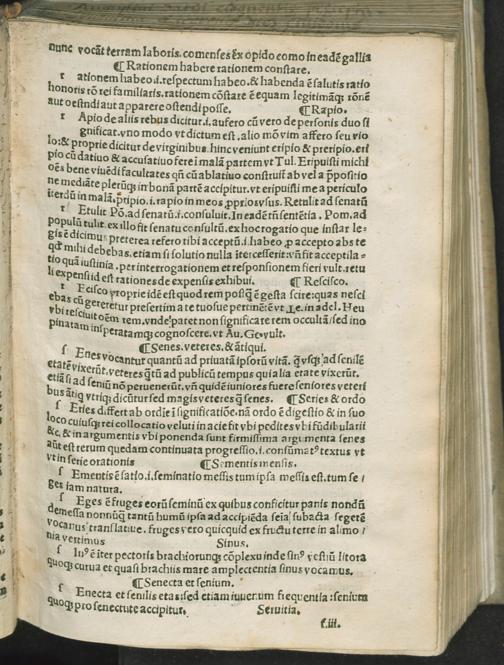 nunc vocãt terram laboris. comenses ẽx opido como in eadẽ gallia
¶ Rationem habere rationem constare.
r ationem habeo .i. respectum habeo. & habenda ẽ salutis ratio
honoris rõ rei familiaris. rationem cõstare ẽ equam legitimãq; rõnẽ
aut ostendi aut apparere ostendi posse. ¶ Rapio.
r Apio de aliis rebus dicitur .i. aufero cũ vero de personis duo si
gnificat. vno modo vt dictum est. alio mõ vim affero seu vio
lo: & proprie dicitur de virginibus. hinc veniunt eripio & preripio. eri
pio cũ datiuo & accusatiuo fere i malã partem vt Tul. Eripuisti michi
oẽs bene viuẽdi facultates qñ cũ ablatiuo construit̃ ab vel a p̃positio
ne mediãte plerũq; in bonã partẽ accipitur. vt eripuisti me a periculo
iterdũ in malã. p̃ripio .i. rapio in meos p̱prios vsus. Retulit ad senatũ
r Etulit Põ. ad senatũ .i. consuluit. In eadẽ tñ sentẽtia. Pom. ad
populũ tulit. ex illo fit senatu consultũ. ex hoc rogatio que instar le-
gis ẽ dicimus preterea refero tibi acceptũ .i. habeo p̱ accepto abs te
qđ mihi debebas. etiam si solutio nulla itercesserit: vñ fit acceptila-
tio quã iustinia. per interrogationem et responsionem fieri vult. retu
li expensũ id est rationes de expensis exhibui. ¶ Rescisco.
r Ecisco proprie idẽ est quod rem postq̃ ẽ gesta scire: quas nesci
ebas cũ gereretur presertim a te tuosue pertinẽtẽ vt Te. in adel. Heu
vbi resciuit oẽm rem. vnde patet non significare rem occultã / sed ino
pinatam insperatamq; cognoscere. vt Au. Ge. vult.
¶ Senes. veteres. & ãtiqui.
s Enes vocantur quantũ ad priuatã ipsorũ vitã. q̃ vsq; ad senilẽ
etatẽ vixerũt. veteres q̃tũ ad publicũ tempus qui alia etate vixerũt.
etiã si ad seniũ nõ peruenerũt. vñ quidẽ iuniores fuere seniores veteri
bus ãtiq̃ vtriq; dicũtur sed magis veteres q̃ senes. ¶ Series & ordo
s Eries differt ab ordĩe ĩ significatiõe. nã ordo ẽ digestio & in suo
loco cuiusq; rei collocatio veluti in acie fit vbi pedites vbi fũdibularii
&c. & in argumentis vbi ponenda sunt firmissima argumenta senes
aũt est rerum quedam continuata progressio .i. consũmatꝰ textus vt
vt in serie orationis ¶ Sementis mensis.
s Ementis ẽ satio .i. seminatio messis tum ipsa messis est. tum se /
ges iam natura.
s Eges ẽ fruges eorũ seminũ ex quibus conficitur panis nondũ
demessa nonnũq̃ tantũ humũ ipsa ad accipiẽda seĩa / subacta segetẽ
vocamus translatiue. fruges vero quicquid ex fructu terre in alimo /
nia vertimus Sinus.
s Inꝰ ẽ iter pectoris brachiorunq; cõplexũ inde sinꝰ vestiũ litora
quoq; curua et quasi brachiis mare amplectentia sinus vocamus.
¶ Senecta et senium.
s Enecta et senilis etas: sed etiam iuuenum frequentia: senium
quoq; pro senectute accipitur. Seruitia.
f.iii.